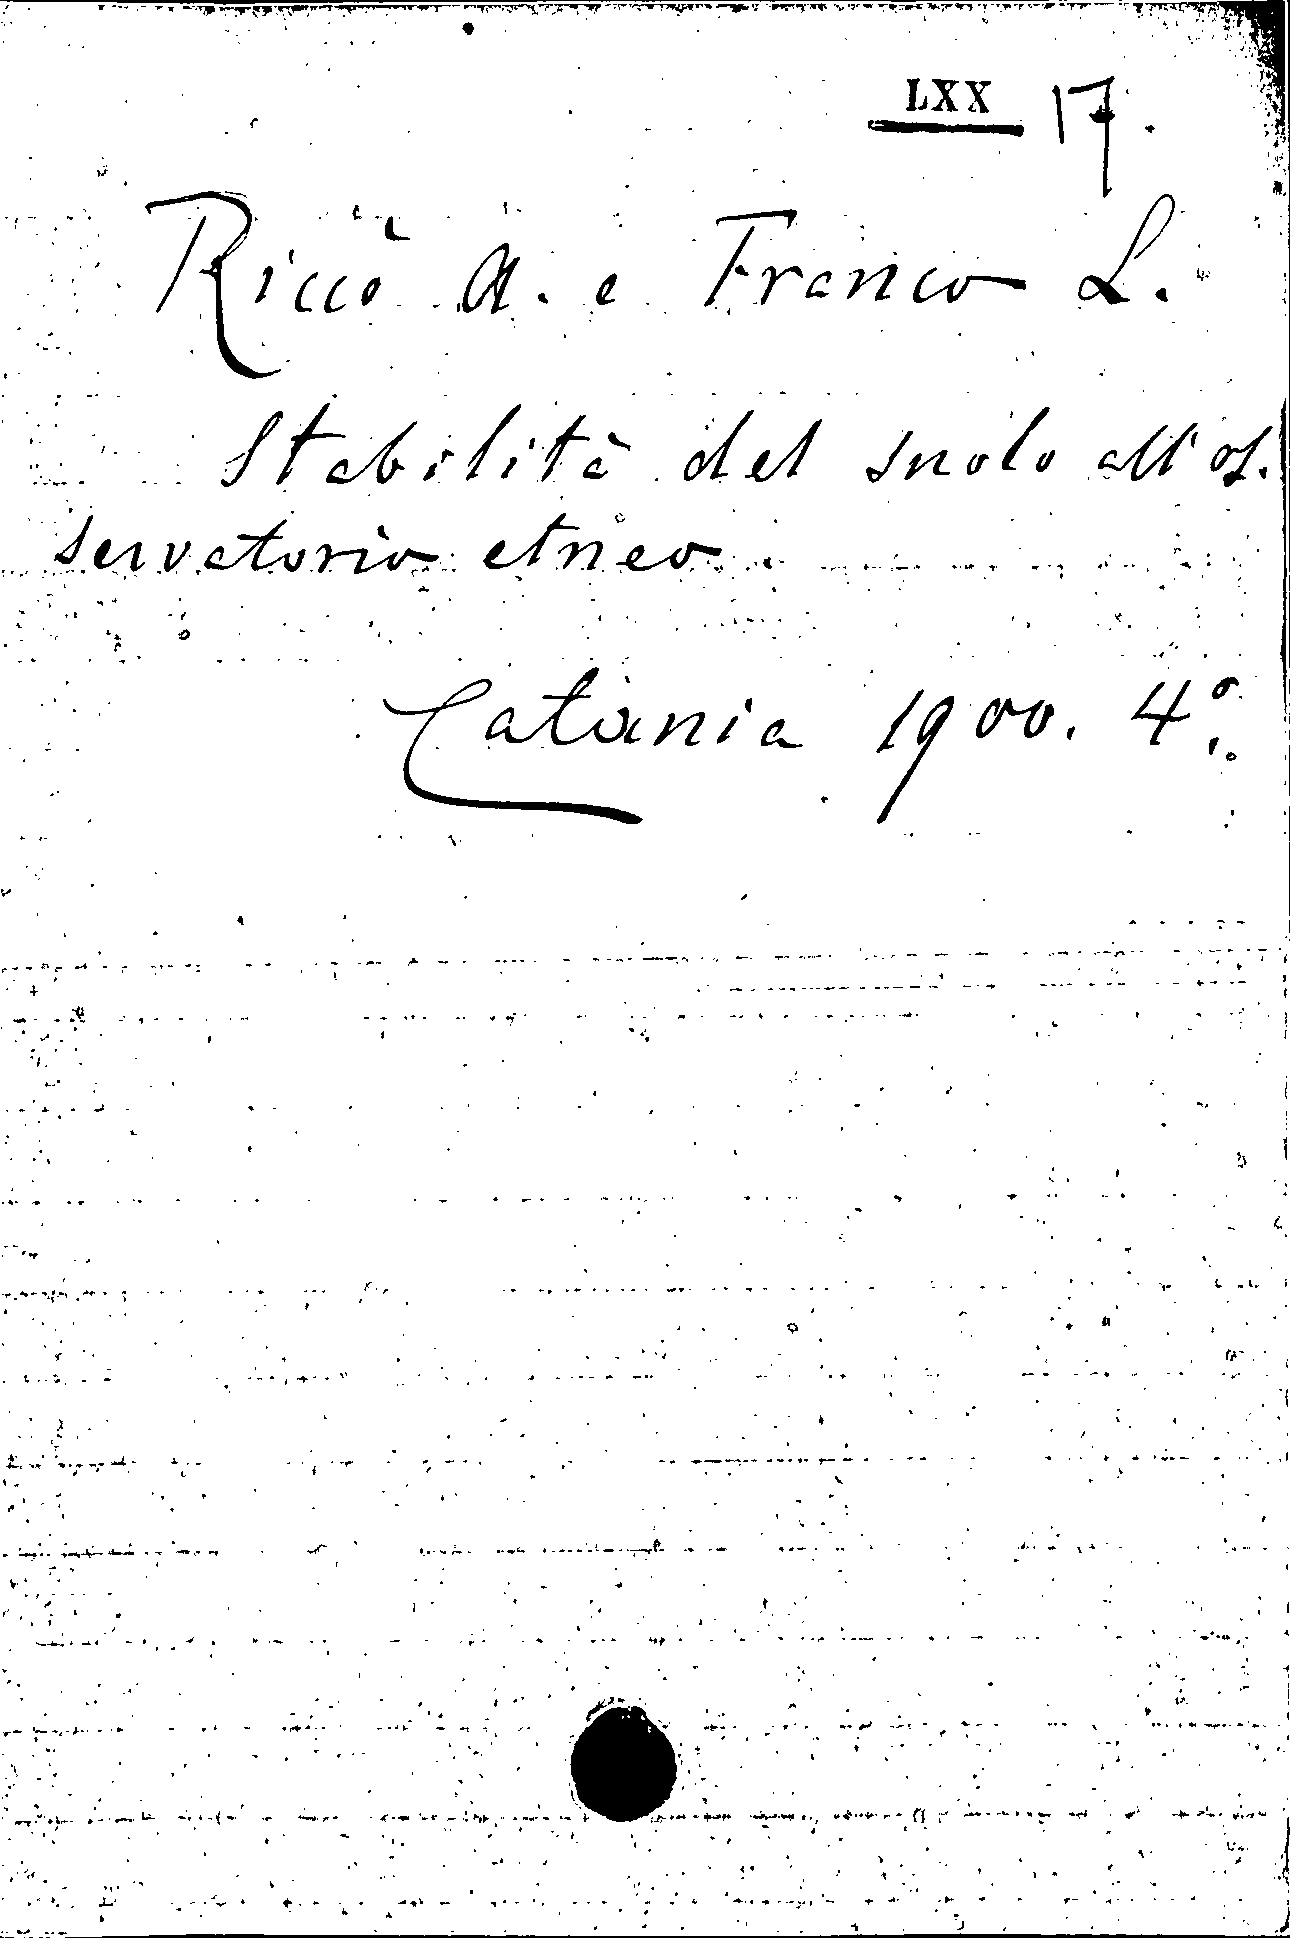 LXX 17.
Riccò A. e Franco L.
Stabilità del suolo all'os-
servatorio etneo.
Catania 1900. 4º.